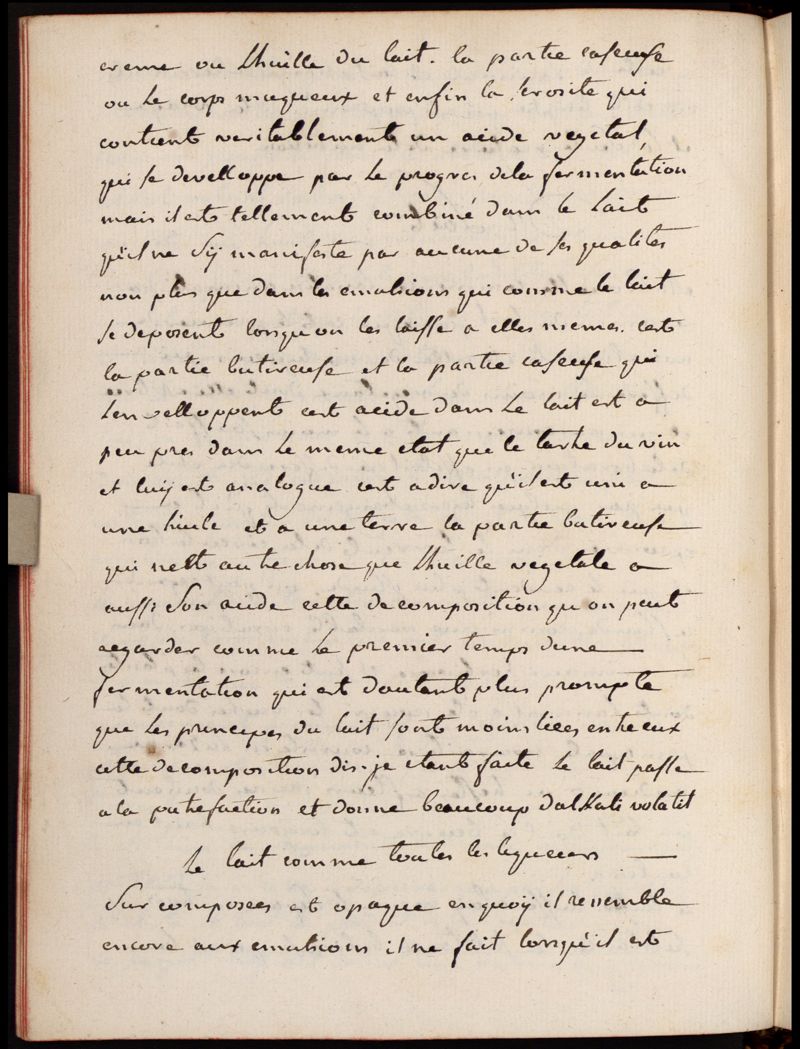 creme ou Lhuille du lait. la partie caseuse
ou Le corps muqueux et enfin la serosité qui
contient veritablement un acide vegetal,
qui se develloppe par Le progres dela fermentation
mais il est tellement combiné dans le Lait
qu'il ne s'ÿ manifeste par aucune de ses qualités
non plus que dans les emulsions qui comme le lait
se deposent lorsqu on les laisse a elles memes. cest
la partie butireuse et la partie caseuse qui
L'envelloppent cet acide dans Le lait est a
peu pres dans Le meme etat que le tartre du vin
et luÿ est analogue cest adire qu'il est uni a
une huile et a une terre la partie butireuse
qui nest autre chose que Lhuille vegetale a
aussi son acide cette decomposition qu on peut
regarder comme Le premier temps dune
fermentation qui est d'autant plus prompte
que Les principes du lait sont moins liées entre eux
cette decomposition dis-je etant faite Le lait passe
a la putrefaction et donne beaucoup dalkali volatil
Le lait comme toutes les liqueurs
sur composees est opaque en quoÿ il ressemble
encore aux emulsions il ne fait lorsqu'il est